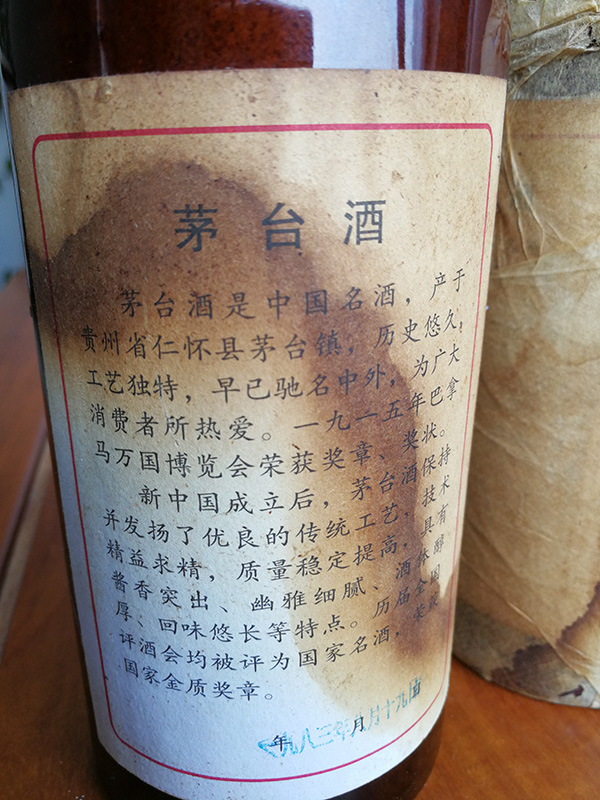 茅台酒
茅台酒是中国名酒，产于
贵州省仁怀县茅台镇，历史悠久，
工艺独特，早已驰名中外，为广大
消费者所热爱。一九一五年巴拿
马万国博览会荣获奖章、奖状。
新中国成立后，茅台酒保持
并发扬了优良的传统工艺，技术
精益求精，质量稳定提高，具有
酱香突出、幽雅细腻、酒体醇
厚、回味悠长等特点。历届全国
评酒会均被评为国家名酒，荣获
国家金质奖章。
年 月
一九八三年八月十九日